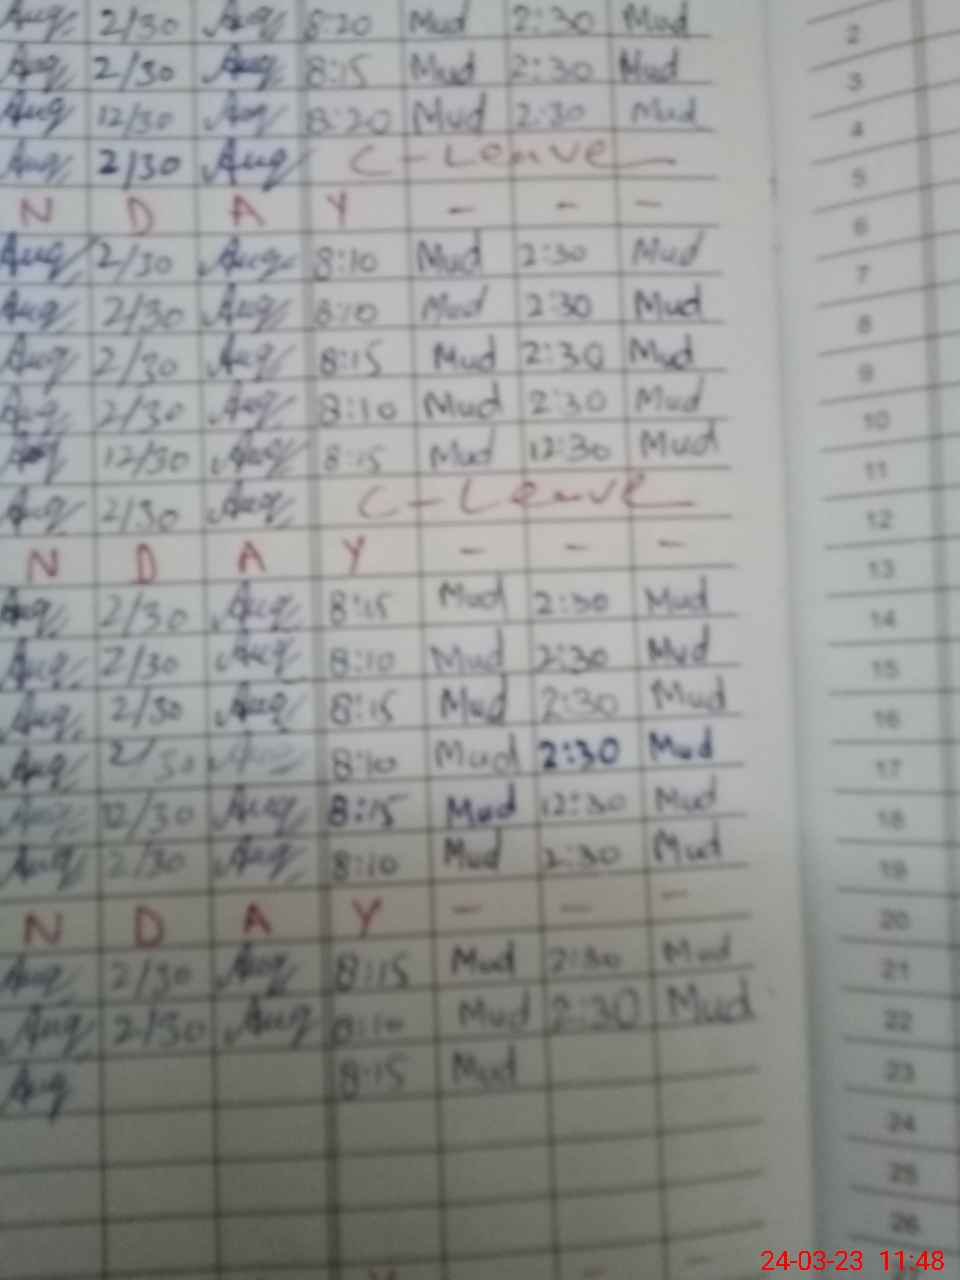 Aug 2/30 Aug 8:20 Mud 2:30 Mud 2
Aug 2/30 Aug 8:15 Mud 2:30 Mud 3
Aug 12/30 Aug 8:20 Mud 2:30 Mud 4
Aug 2/30 Aug C-Leave 5
N D A Y - - - 6
Aug 2/30 Aug 8:10 Mud 2:30 Mud 7
Aug 2/30 Aug 8:10 Mud 2:30 Mud 8
Aug 2/30 Aug 8:15 Mud 2:30 Mud 9
Aug 2/30 Aug 8:10 Mud 2:30 Mud 10
Aug 12/30 Aug 8:15 Mud 12:30 Mud 11
Aug 2/30 Aug C-Leave 12
N D A Y - - - 13
Aug 2/30 Aug 8:15 Mud 2:30 Mud 14
Aug 2/30 Aug 8:10 Mud 2:30 Mud 15
Aug 2/30 Aug 8:15 Mud 2:30 Mud 16
Aug 2/30 8:10 Mud 2:30 Mud 17
12/30 Aug 8:15 Mud 12:30 Mud 18
Aug 2/30 Aug 8:10 Mud 2:30 Mud 19
N D A Y - - - 20
Aug 2/30 Aug 8:15 Mud 2:30 Mud 21
Aug 2/30 Aug 8:10 Mud 2:30 Mud 22
Aug 8:15 Mud 23
24
25
26
24-03-23 11:48